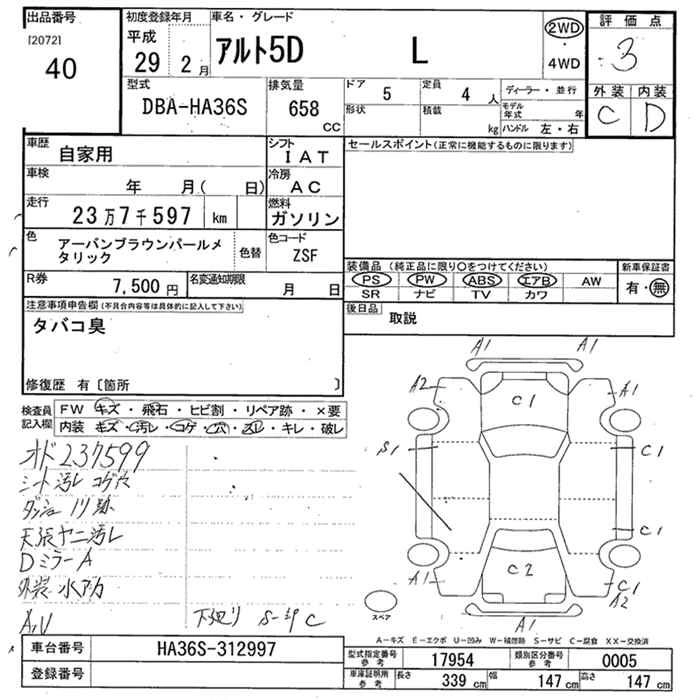 出品番号
[2072]
40
初度登録年月
平成
29 2月
車名・グレード
アルト5D L
2WD
・
4WD
評価点
3
外装 内装
C D
型式
DBA-HA36S
排気量
658
CC
ドア 5
定員 4 人
ディーラー・並行
形状
積載 kg
モデル年式 年
ハンドル 左・右
車歴
自家用
シフト
IAT
車検
年 月( 日)
冷房
AC
走行
23万7千597 km
燃料
ガソリン
色
アーバンブラウンパールメタリック
色替
色コード
ZSF
R券
7,500円
名変通知期限
月 日
セールスポイント(正常に機能するものに限ります)
装備品 (純正品に限り○をつけてください)
PS PW ABS エアB AW
SR ナビ TV カワ
新車保証書
有・無
後日品
取説
注意事項申告欄(不具合内容等は具体的に記入して下さい)
タバコ臭
修復歴 有〔箇所 〕
検査員記入欄
FW キズ・飛石・ヒビ割・リペア跡・×要
内装 キズ・汚レ・コゲ・穴・スレ・キレ・破レ
オド237599
シート汚レ コゲ穴
ダッシュ
天張ヤニ汚レ
DミラーA
外装 水アカ
A,U
下廻り S- C
A1
A1
A2
A1
C1
S1
C1
C1
C2
A1
C1
A2
A1
スペア
A-キズ E-エクボ U-凹み W-補修跡 S-サビ C-腐食 XX-交換済
車台番号
HA36S-312997
登録番号
型式指定番号 参考
17954
類別区分番号 参考
0005
車庫証明所 参考
長さ 339 cm
幅 147 cm
高さ 147 cm